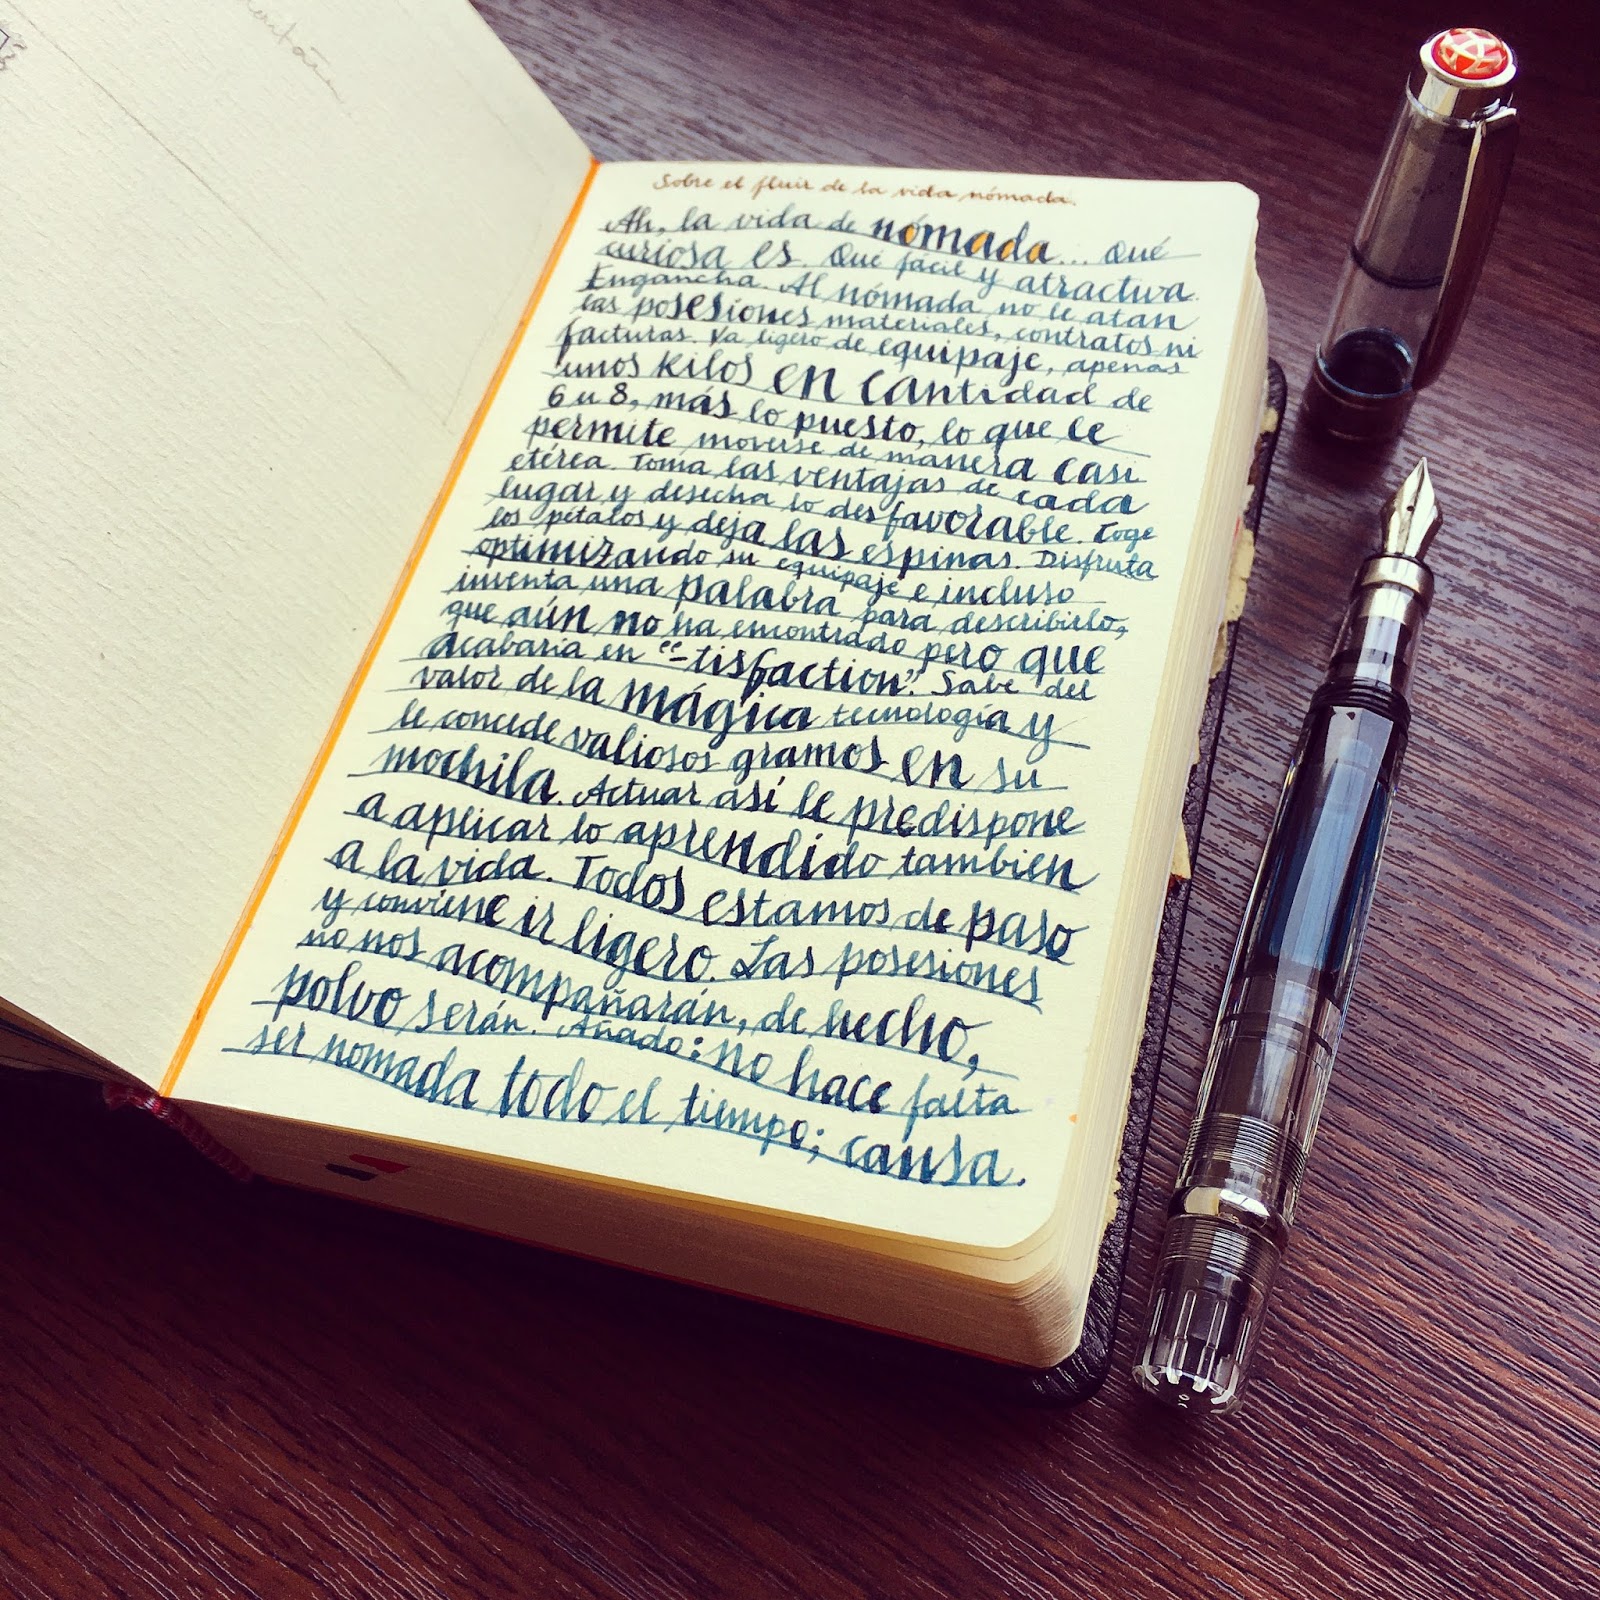 Sobre el fluir de la vida nómada.
Ah, la vida de nómada... Qué
curiosa es. Qué fácil y atractiva.
Engancha. Al nómada no le atan
las posesiones materiales, contratos ni
facturas. Va ligero de equipaje, apenas
unos kilos en cantidad de
6 u 8, más lo puesto, lo que le
permite moverse de manera casi
etérea. Toma las ventajas de cada
lugar y desecha lo desfavorable. Coge
los pétalos y deja las espinas. Disfruta
optimizando su equipaje e incluso
inventa una palabra para describirlo,
que aún no ha encontrado pero que
acabaría en "-tisfaction". Sabe del
valor de la mágica tecnología y
le concede valiosos gramos en su
mochila. Actuar así le predispone
a aplicar lo aprendido tambien
a la vida. Todos estamos de paso
y conviene ir ligero. Las posesiones
no nos acompañarán, de hecho,
polvo serán. Añado: no hace falta
ser nomada todo el tiempo; cansa.